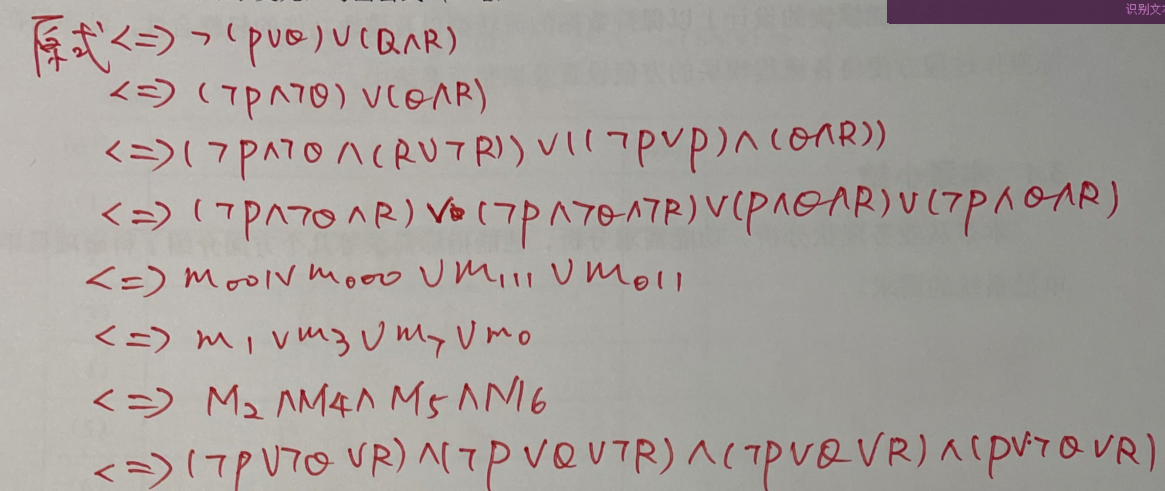 识别文
原式<=>¬(P∨Q)∨(Q∧R)
<=>(¬P∧¬Q)∨(Q∧R)
<=>(¬P∧¬Q∧(R∨¬R))∨((¬P∨P)∧(Q∧R))
<=>(¬P∧¬Q∧R)∨(¬P∧¬Q∧¬R)∨(P∧Q∧R)∨(¬P∧Q∧R)
<=>m001∨m000∨m111∨m011
<=>m1∨m3∨m7∨m0
<=>M2∧M4∧M5∧M6
<=>(¬P∨¬Q∨R)∧(¬P∨Q∨¬R)∧(¬P∨Q∨R)∧(P∨¬Q∨R)